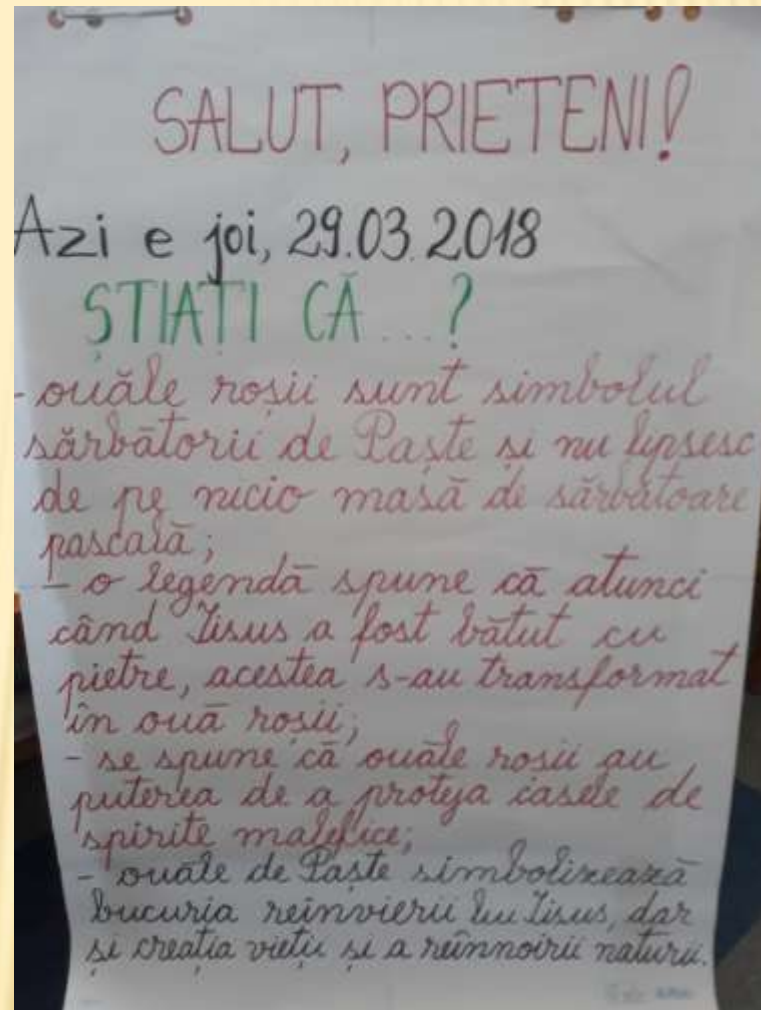 SALUT, PRIETENI!
Azi e joi, 29.03.2018
ȘTIAȚI CĂ...?
- ouăle roșii sunt simbolul
sărbătorii de Paște și nu lipsesc
de pe nicio masă de sărbătoare
pascală;
- o legendă spune că atunci
când Iisus a fost bătut cu
pietre, acestea s-au transformat
în ouă roșii;
- se spune că ouăle roșii au
puterea de a proteja casele de
spirite malefice;
- ouăle de Paște simbolizează
bucuria reînvierii lui Iisus, dar
și creația vieții și a reînnoirii naturii.